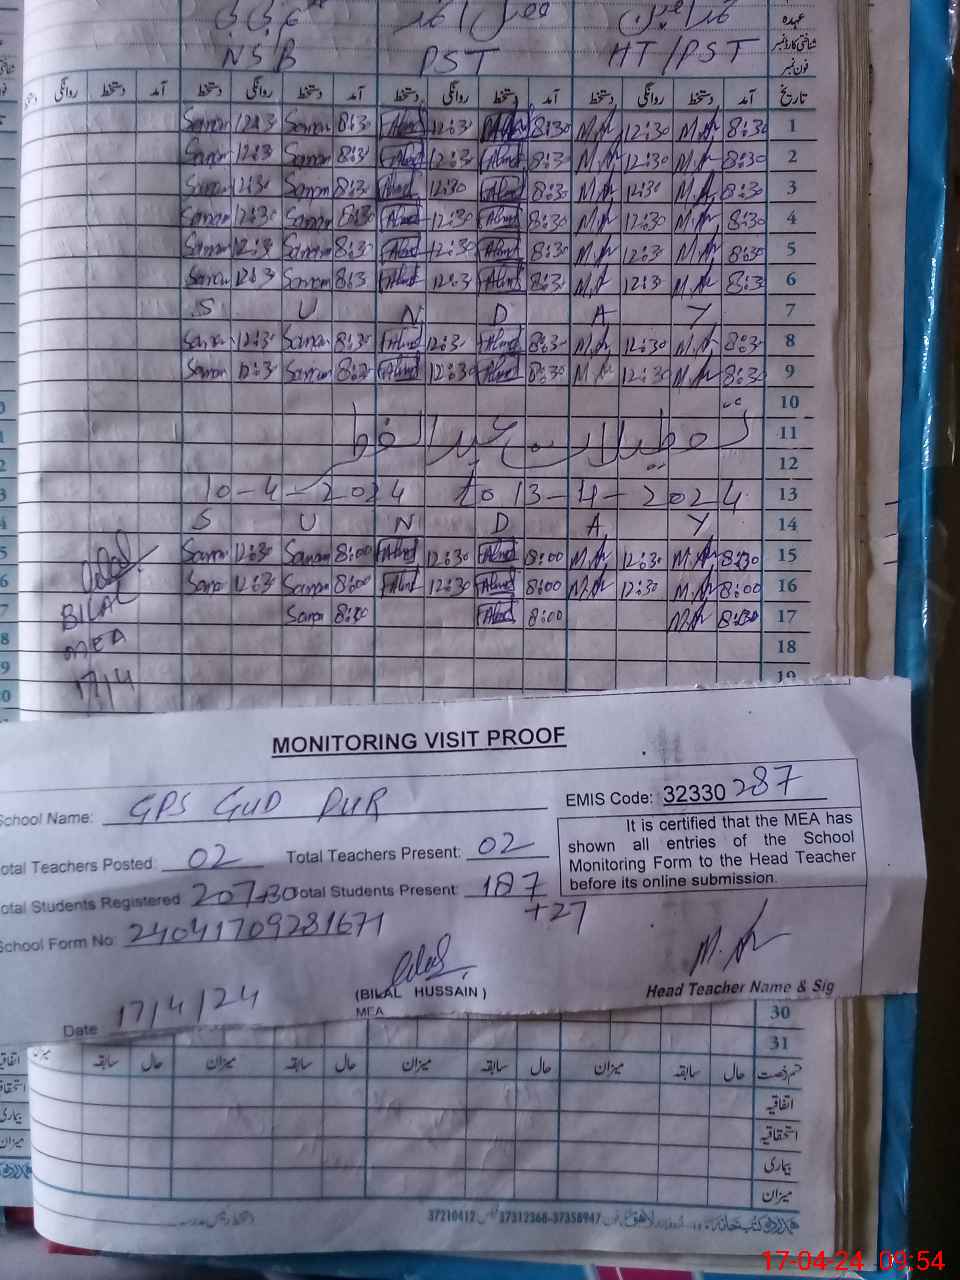 عہدہ
شناختی کارڈ نمبر NSB PST HT/PST
فون نمبر
تاریخ آمد دستخط روانگی دستخط آمد دستخط روانگی دستخط آمد دستخط روانگی دستخط آمد دستخط روانگی
1 8:30 M.A 12:30 M.A 8:30 Ahmd 12:30 Ahmd 8:30 Sanam 12:30 Sanam
2 8:30 M.A 12:30 M.A 8:30 Ahmd 12:30 Ahmd 8:30 Sanam 12:30 Sanam
3 8:30 M.A 12:30 M.A 8:30 Ahmd 12:30 Ahmd 8:30 Sanam 12:30 Sanam
4 8:30 M.A 12:30 M.A 8:30 Ahmd 12:30 Ahmd 8:30 Sanam 12:30 Sanam
5 8:30 M.A 12:30 M.A 8:30 Ahmd 12:30 Ahmd 8:30 Sanam 12:30 Sanam
6 8:3 M.A 12:3 M.A 8:30 Ahmd 12:3 Ahmd 8:3 Sanam 12:3 Sanam
S U N D A Y 7
8 8:30 M.A 12:30 M.A 8:3 Ahmd 12:3 Ahmd 8:3 Sanam 12:3 Sanam
9 8:30 M.A 12:30 M.A 8:30 Ahmd 12:30 Ahmd 8:30 Sanam 12:3 Sanam
10
تعطیلات عیدالفطر 11
12
10-4-2024 to 13-4-2024 13
S U N D A Y 14
15 8:30 M.A 12:30 M.A 8:00 Ahmd 12:30 Ahmd 8:00 Sanam 12:30 Sanam
16 8:00 M.A 12:30 M.A 8:00 Ahmd 12:30 Ahmd 8:00 Sanam 12:30 Sanam
17 8:00 M.A 8:00 Ahmd 8:00 Sanam
18
19
BILAL
MEA
17/4
MONITORING VISIT PROOF
School Name: GPS GUD PUR
EMIS Code: 32330 287
Total Teachers Posted: 02 Total Teachers Present: 02
Total Students Registered 207+30 Total Students Present: 187
+27
School Form No: 24041709281671
It is certified that the MEA has
shown all entries of the School
Monitoring Form to the Head Teacher
before its online submission.
Date 17/4/24
(BILAL HUSSAIN)
MEA
M.A
Head Teacher Name & Sig
30
31
حال سابقہ میزان حال سابقہ میزان حال سابقہ میزان
اتفاقیہ
استحقاقیہ
بیماری
میزان
37210412 37312368-37358947
17-04-24 09:54